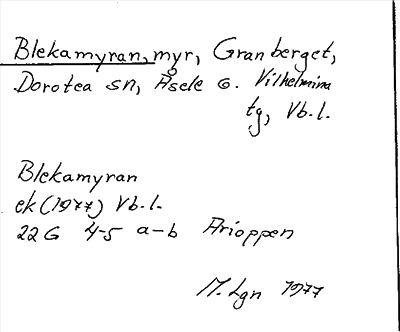 Blekamyran, myr, Granberget,
Dorotea sn, Åsele o. Vilhelmina
tg, Vb.l.
Blekamyran
ek (1977) Vb.l.
22G 4-5 a-b Arioppen
M. Lgn 1977